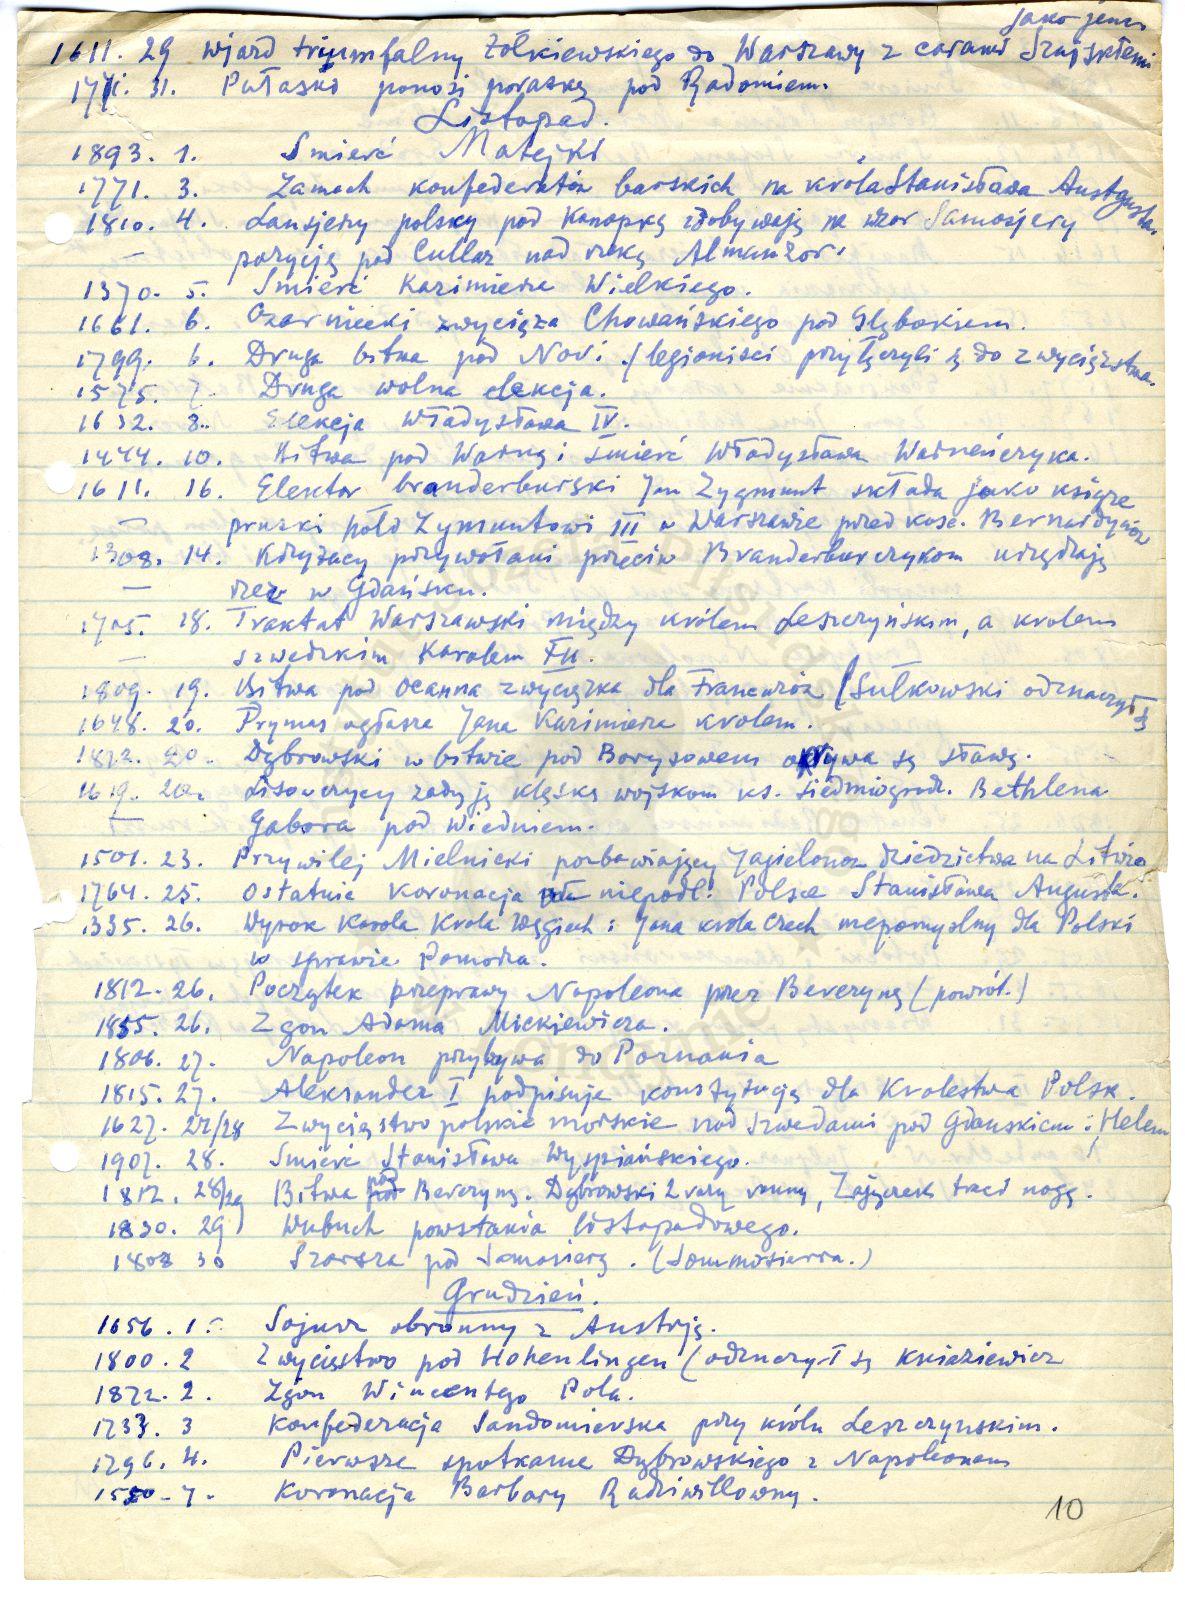 jako jeńc
1611. 29 wjazd tryumfalny Żółkiewskiego do Warszawy z carami Szujskiemi
1771. 31. Pułaski ponosi porażkę pod Radomiem.
Listopad.
1893. 1. Smierć Matejki
1771. 3. Zamach konfederatów barskich na króla Stanisława Augusta.
1810. 4. Lansjerzy polscy pod Konopką zdobywają na wzor Samosjery
— pozycję pod Cullar nad rzeką Almanzor.
1370. 5. Smierć Kazimierza Wielkiego.
1661. 6. Czarniecki zwycięża Chowańskiego pod Głębokiem.
1799. 6. Druga bitwa pod Novi /legioniści przyłączyli się do zwycięstwa.
1575. 7. Druga wolna elekcja.
1632. 8. Elekcja Władysława IV.
1444. 10. Bitwa pod Warną i śmierć Władysława Warneńczyka.
1611. 16. Elektor branderburski Jan Zygmunt składa jako książe
— pruski hołd Zygmuntowi III w Warszawie przed kośc. Bernardynów
1308. 14. Krzyżacy przywołani przeciw Branderburczykom urządzają
— rzeź w Gdańsku.
1705. 18. Traktat Warszawski między królem Leszczyńskim, a krolem
— szwedzkim Karolem XII.
1809. 19. Bitwa pod Ocanna zwycięzka dla Francuzów (Sułkowski odznaczył się
1648. 20. Prymas ogłasza Jana Kazimierza krolem.
1812. 20. Dąbrowski w bitwie pod Borysowem okrywa się sławą.
1619. 20. Lisowczycy zadają klęskę wojskom ks. siedmiogrodz. Bethlena
— Gabora pod Wiedniem.
1501. 23. Przywilej Mielnicki pozbawiający Jagielonow dziedzictwa na Litwie
1764. 25. Ostatnia koronacja niepodl. Polsce Stanisława Augusta.
1335. 26. Wyrok Karola Krola Węgiech i Jana krola Czech niepomyślny dla Polski
w sprawie Pomorza.
1812. 26. Początek przeprawy Napoleona przez Berezynę (powrót.)
1855. 26. Zgon Adama Mickiewicza.
1806. 27. Napoleon przybywa do Poznania
1815. 27. Aleksander I podpisuje konstytucję dla Krolestwa Polsk.
1627. 27/28 Zwycięstwo polskie morskie nad Szwedami pod Gdanskiem i Helem
1907. 28. Smierć Stanisława Wyspiańskiego.
1812. 28/29 Bitwa nad Berezyną. Dąbrowski 2 razy ranny, Zajączek traci nogę.
1830. 29 Wybuch powstania listopadowego.
1808 30 Szarsza pod Samosierą. (Sommosierra.)
Grudzień.
1656. 1. Sojusz obronny z Austrją.
1800. 2 Zwycięstwo pod Hohenlingen (odznaczył się Kniaziewicz
1872. 2. Zgon Wincentego Pola.
1733. 3 Konfederacja Sandomierska przy królu Leszczynskim.
1796. 4. Pierwsze spotkanie Dąbrowskiego z Napoleonem
1550 - 7. Koronacja Barbary Radziwiłłowny.
10